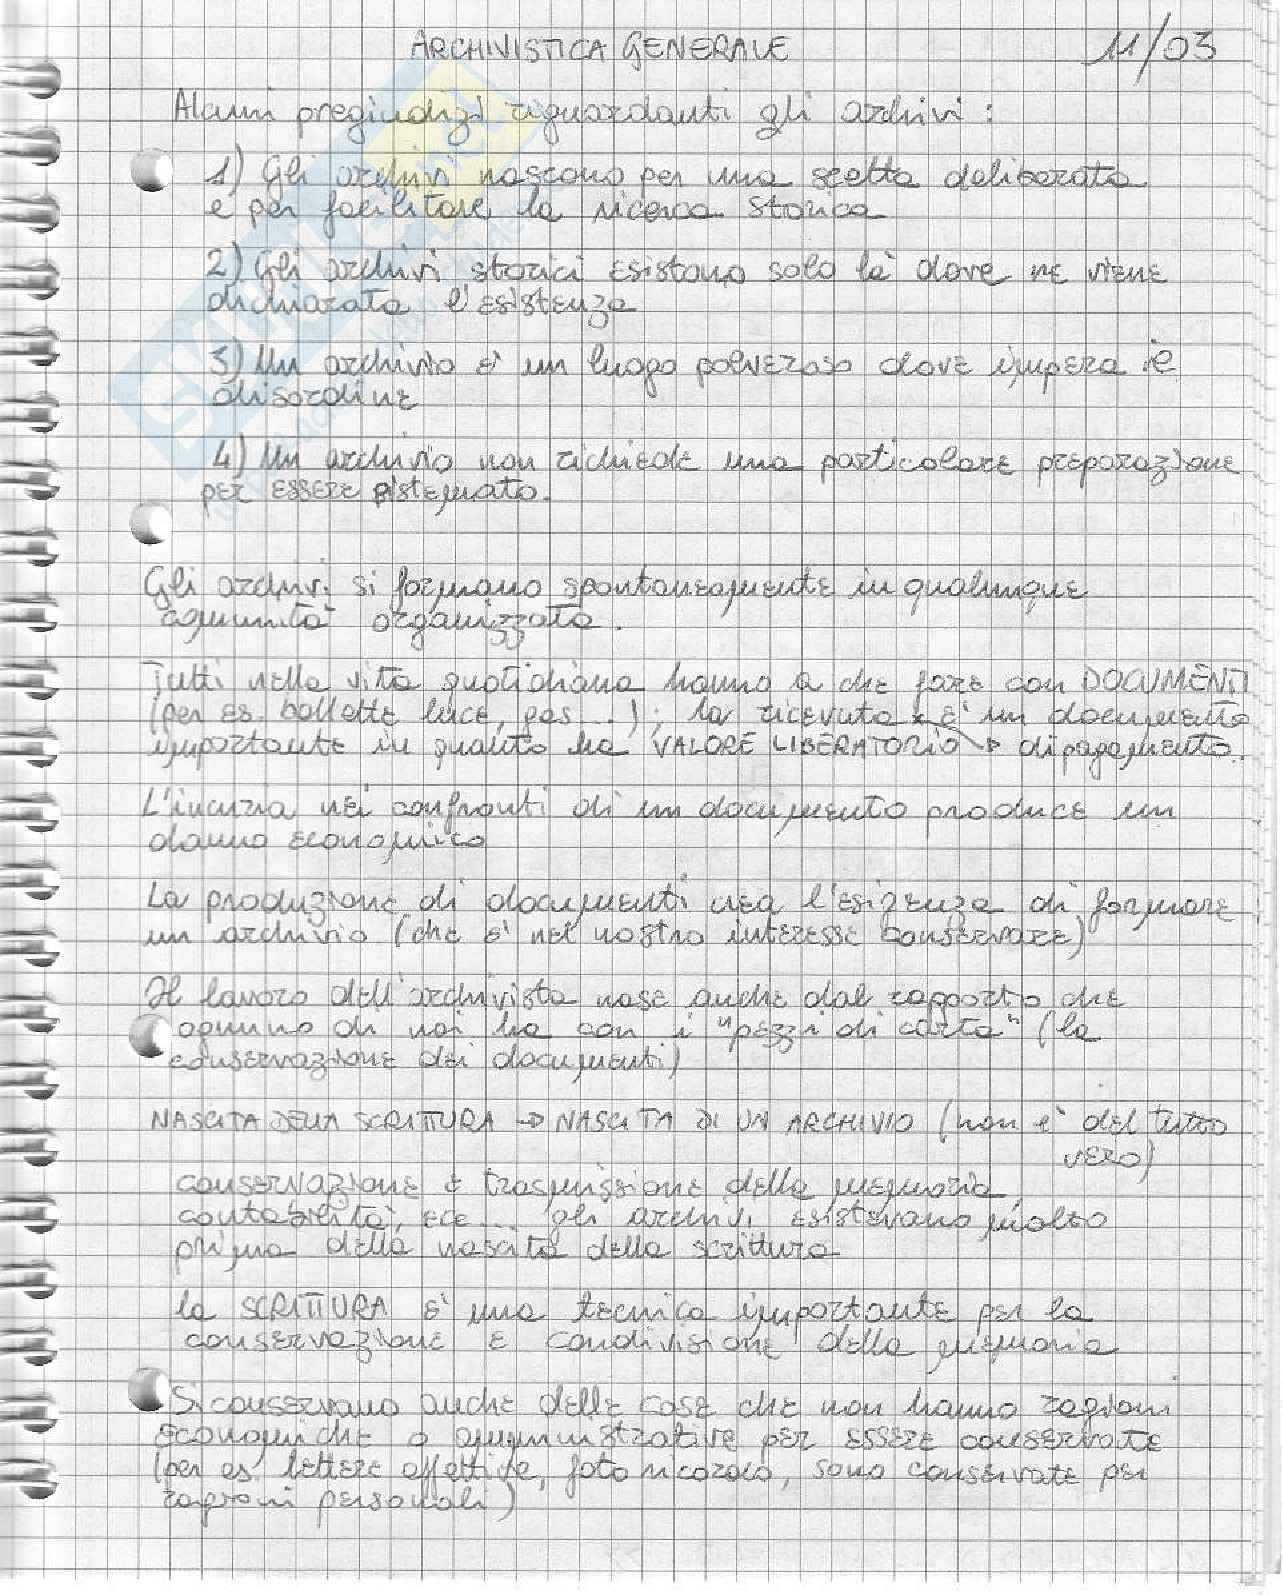 ARCHIVISTICA GENERALE 11/03
Alcuni pregiudizi riguardanti gli archivi :
1) Gli archivi nascono per una scelta deliberata
e per facilitare la ricerca storica
2) Gli archivi storici esistono solo là dove ne viene
dichiarata l'esistenza
3) Un archivio è un luogo polveroso dove impera il
disordine
4) Un archivio non richiede una particolare preparazione
per essere sistemato.
Gli archivi si formano spontaneamente in qualunque
comunità organizzata.
Tutti nella vita quotidiana hanno a che fare con DOCUMENTI
(per es. bollette luce, gas...); la ricevuta è un documento
importante in quanto ha VALORE LIBERATORIO di pagamento.
L'incuria nei confronti di un documento produce un
danno economico
La produzione di documenti crea l'esigenza di formare
un archivio (che è nel nostro interesse conservare)
Il lavoro dell'archivista nase anche dal rapporto che
ognuno di noi ha con i "pezzi di carta" (la
conservazione dei documenti)
NASCITA DELLA SCRITTURA → NASCITA DI UN ARCHIVIO (non è del tutto
vero)
conservazione e trasmissione della memoria,
contabilità, ecc... gli archivi esistevano molto
prima della nascita della scrittura
la SCRITTURA è una tecnica importante per la
conservazione e condivisione della memoria
Si conservano anche delle cose che non hanno ragioni
economiche o amministrative per essere conservate
(per es. lettere affettive, foto ricordo, sono conservate per
ragioni personali)